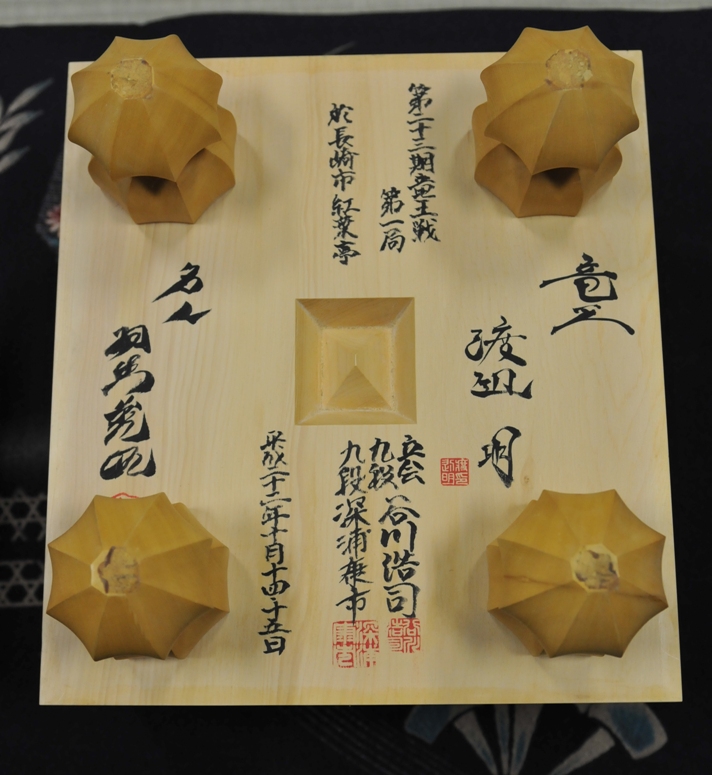 竜王
渡辺 明
第二十三期竜王戦
第一局
於長崎市 紅葉亭
立会
九段 谷川浩司
九段 深浦康市
平成二十二年十月十四・十五日
名人
羽生善治